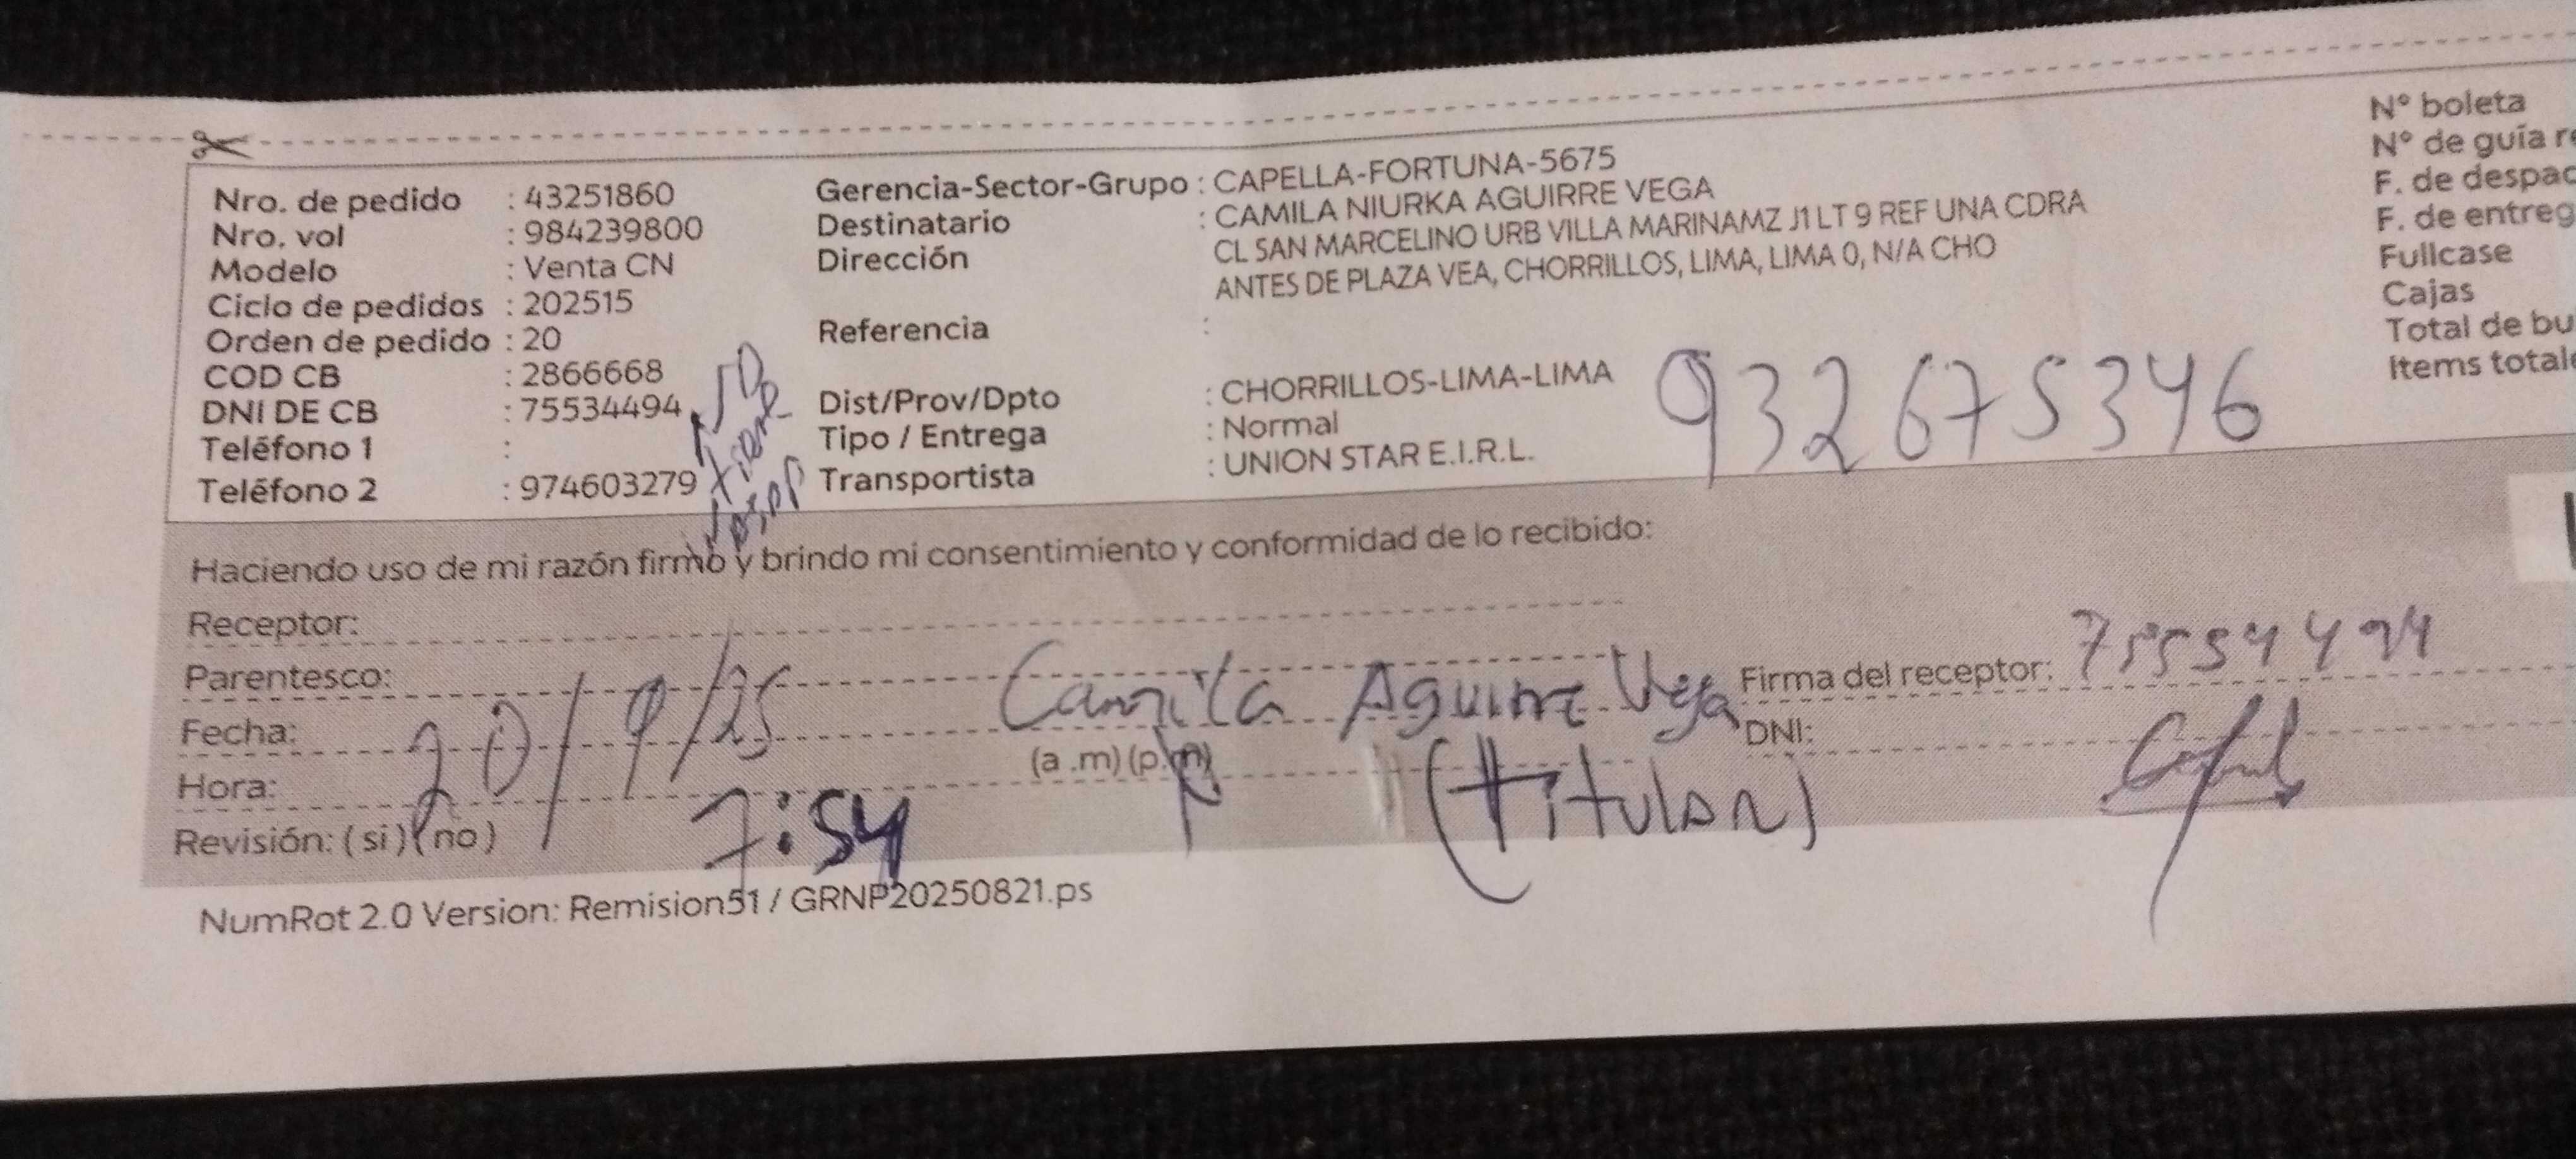 Nro. de pedido : 43251860
Nro. vol : 984239800
Modelo : Venta CN
Ciclo de pedidos : 202515
Orden de pedido : 20
COD CB : 2866668
DNI DE CB : 75534494
Teléfono 1 :
Teléfono 2 : 974603279
Gerencia-Sector-Grupo : CAPELLA-FORTUNA-5675
Destinatario : CAMILA NIURKA AGUIRRE VEGA
Dirección CL SAN MARCELINO URB VILLA MARINAMZ J1 LT 9 REF UNA CDRA
ANTES DE PLAZA VEA, CHORRILLOS, LIMA, LIMA 0, N/A CHO
Referencia :
Dist/Prov/Dpto : CHORRILLOS-LIMA-LIMA
Tipo / Entrega : Normal
Transportista : UNION STAR E.I.R.L.
932675346
N° boleta
N° de guía
F. de
F. de
Fullcase
Cajas
Total de
Items
Haciendo uso de mi razón firmo y brindo mi consentimiento y conformidad de lo recibido:
Receptor:
Parentesco:
Camila Aguirre Vega
Firma del receptor:
Fecha: 20/9/25
DNI:
Hora: 7:54 (a .m) (p.m)
(titular)
Revisión: ( si ) ( no )
NumRot 2.0 Version: Remision51 / GRNP20250821.ps